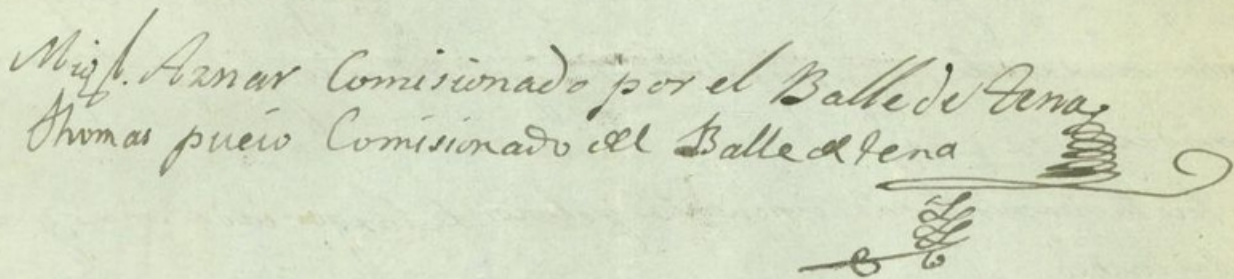 Migl. Aznar Comisionado por el Balle de tena
Thomas pueio Comisionado del Balle de tena